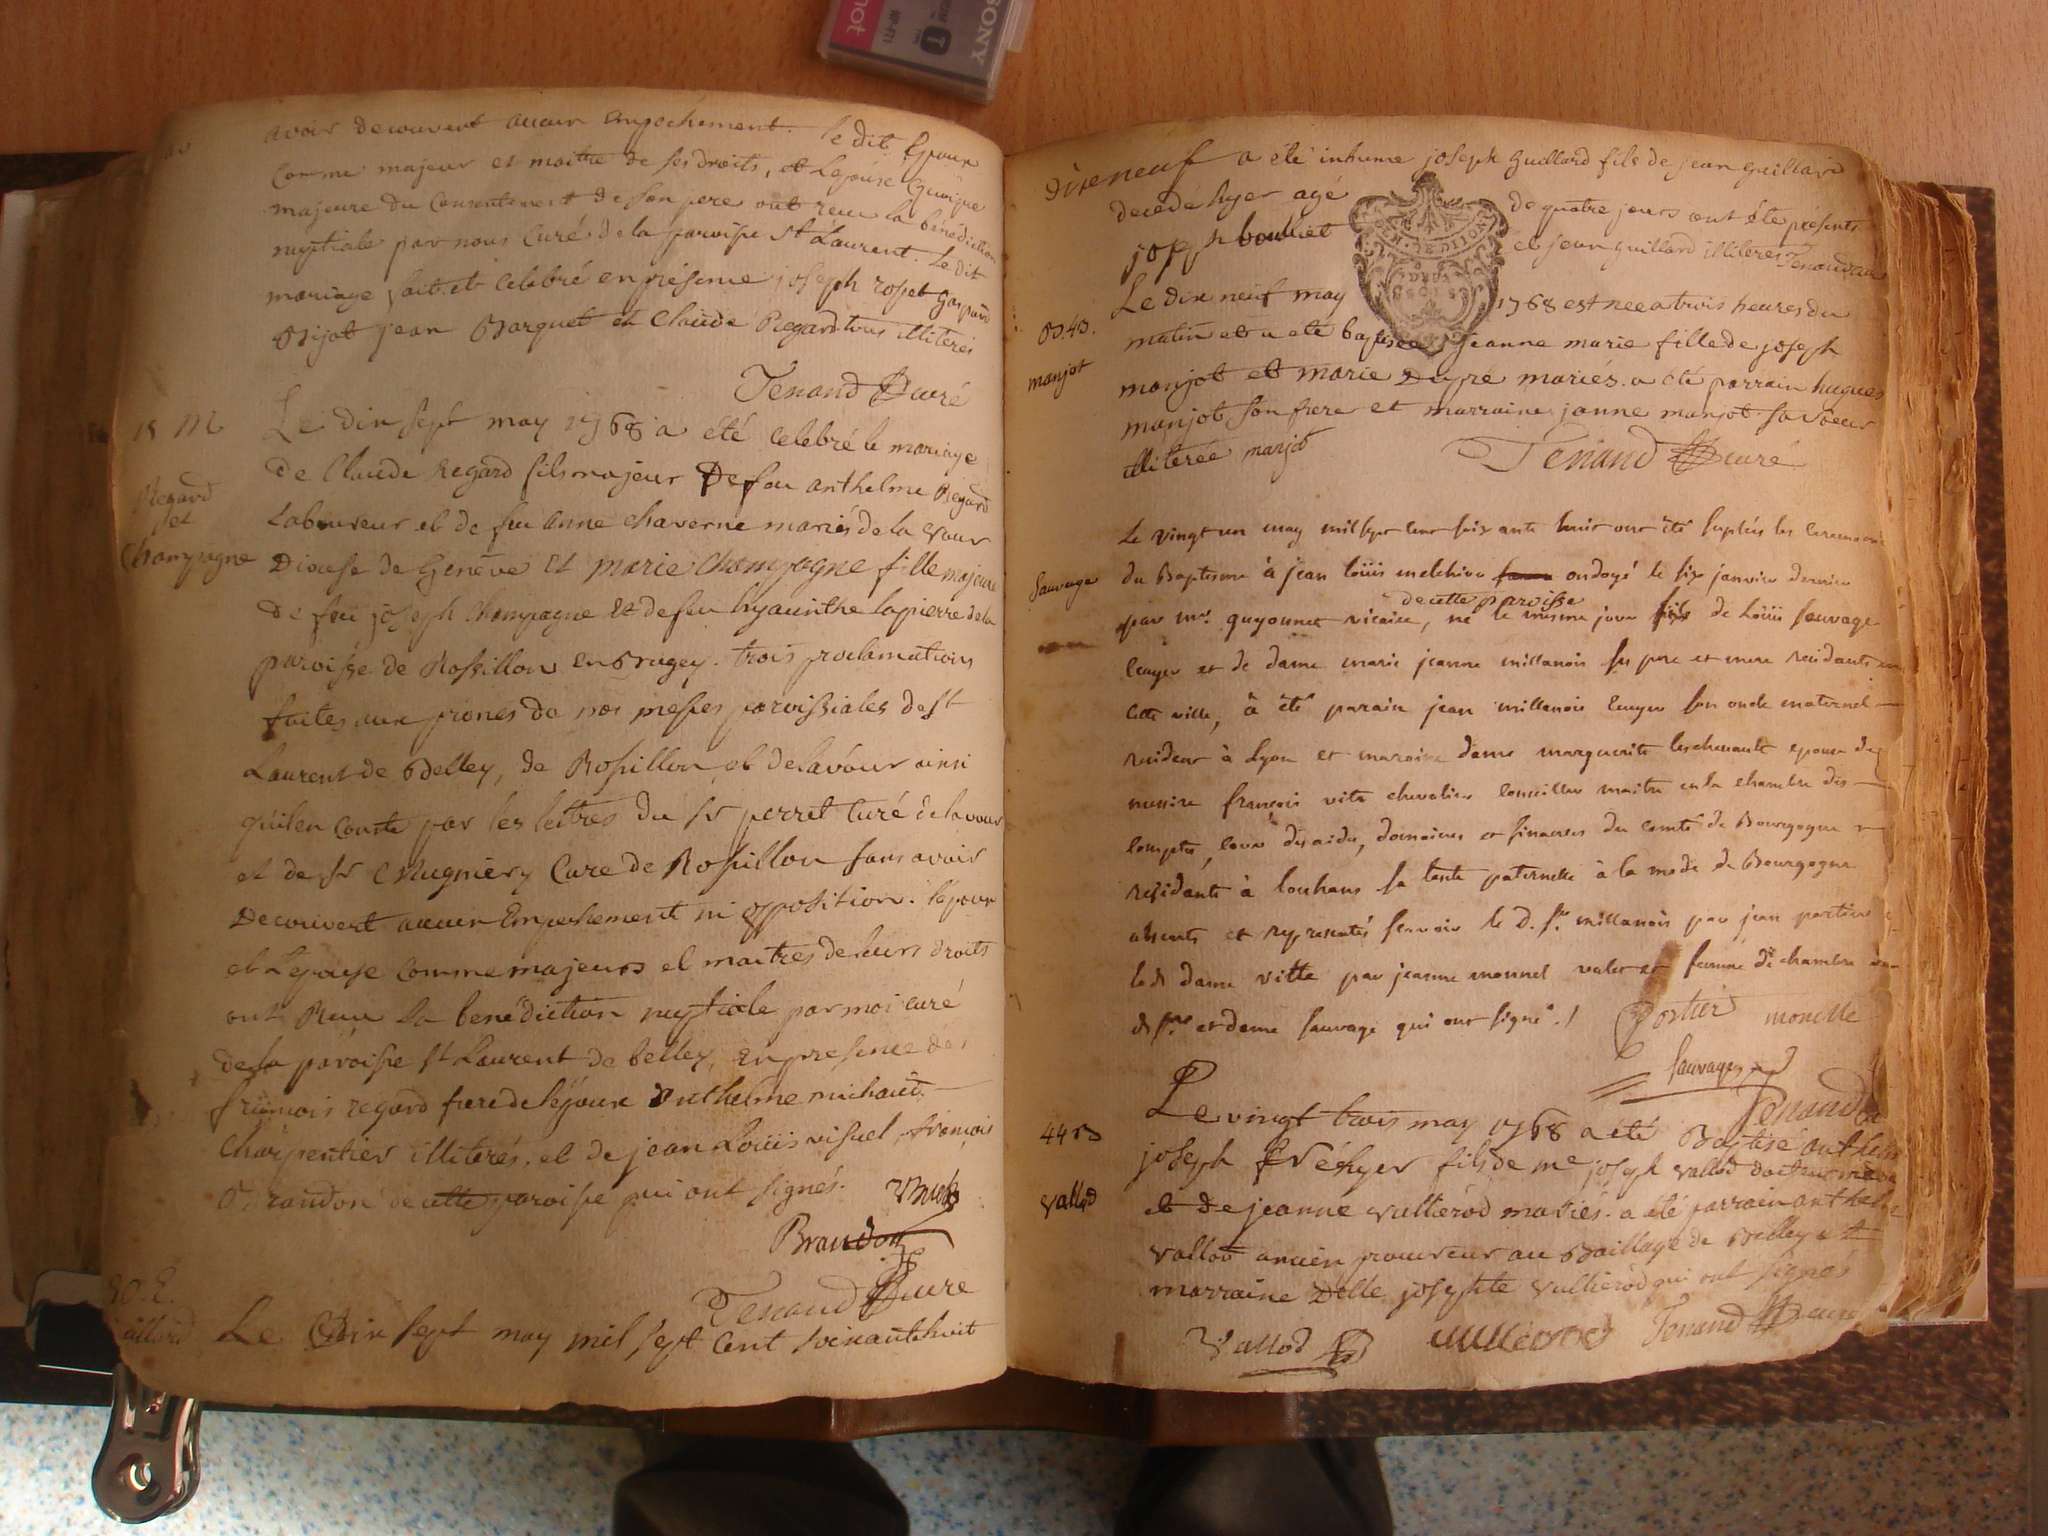 SONY
avoir decouvert aucun empechement. le dit Epoux
comme majeur et maitre de ses droits, et Lepouse quoique
majeure du Consentement de son pere ont reçu la bénediction
nuptiale par nous Curé de la paroisse St Laurent. Le dit
mariage fait et Celebré en présence joseph rosset gaspard
Bijot jean Barquet et Claude Regard tous illiterés
Tenand Curé
15 M
Regard
et
Champagne
Le dix sept may 1768 a été Celebré le mariage
de Claude Regard fils majeur De feu anthelme Regard
Laboureur et de feu anne chaverne mariés de la vour
Diocese de Genève et marie Champagne fille majeure
de feu joseph Champagne et de feu hyacinthe lapierre de la
paroisse de Rossillon en Bugey. trois proclamations
faites aux prones de nos messes paroissiales de st
Laurent de Belley, de Rossillon et de lavour ainsi
quil en Conste par les lettres du Sr perret Curé de lavour
et de Sr Mugniery Curé de Rossillon sans avoir
Decouvert aucun Empechement ni opposition. lepoux
et Lepouse Comme majeurs et maitres de leurs droits
ont Reçu la benédiction nuptiale par moi curé
de la paroisse st Laurent de belley, En presence de
françois regard frere de léjoux anthelme michaud
Charpentier illiterés. et de jean Loüis visuel, françois
Brandon de cette paroisse qui ont signés.
Brandon
Tenand Curé
30. E.
Le Dix sept may mil sept Cent soixante huit
Dixeneuf a été inhumé joseph Guillard fils de jean guillard
decedé hyer agé de quatre jours ont été présents
joseph bouillet et jean guillard illiteres Tenand curé
B. 43.
manjot
Le dix neuf may 1768 est née a trois heures du
matin et a eté baptisée jeanne marie fille de joseph
manjot et marie Dupré mariés. a été parrain hugues
manjot, son frere et marraine janne manjot sa soeur
illiterée manjot
Tenand Curé
Sauvage
Le vingt un may mil sept cent soixante huit ont été suplées les ceremonies
du Baptesme à jean loüis melchior ondoyé le six janvier dernier
de cette paroisse
par mr. guyonnet vicaire, né le mesme jour fils de Loüis sauvage
Ecuyer et de dame marie jeanne millanois ses pere et mere residants en
cette ville, à été parain jean millanois Ecuyer son oncle maternel
resident à Lyon et maraine dame marguerite leschenault epouse de
messire françois vitte chevalier conseiller maitre en la chambre des
comptes, cour des aides, domaines et finances du comté de Bourgogne
residante à louhans sa tante paternelle à la mode de Bourgogne
absents et representés sçavoir le d. sr. millanois par jean portier
lad dame vitte par jeanne monnet valet et femme de chambre
d sr. et dame sauvage qui ont signé. /
Portier monette
sauvage
Tenand
44 B
Vallod
Le vingt trois may 1768 a eté Baptisé anthelme
joseph né hyer fils de me joseph vallod docteur
et de jeanne vullierod mariés. a été parrain anthelme
vallod ancien procureur au Baillage de Belley et
marraine Delle josephte vullierod qui ont signés
Vallod vullierod Tenand Curé